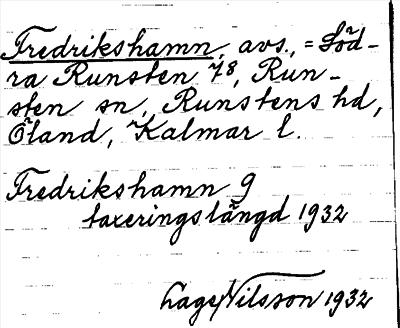 Fredrikshamn, avs., = Söd-
ra Runsten 7⁸, Run-
sten sn, Runstens hd,
Öland, Kalmar l.
Fredrikshamn g
taxeringslängd 1932
Lage Nilsson 1932